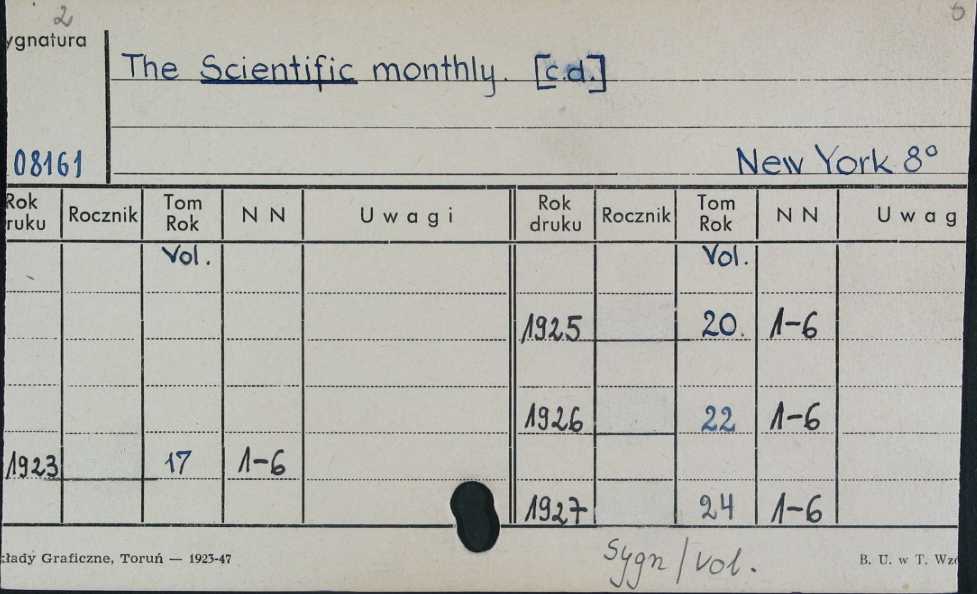 2 6
ygnatura
The Scientific monthly. [c.d.]
08161
New York 8°
Rok ruku Rocznik Tom Rok N N Uwagi Rok druku Rocznik Tom Rok N N Uwag
Vol. Vol.
1925 20. 1-6
1926 22 1-6
1923 17 1-6
1927 24 1-6
kłady Graficzne, Toruń — 1923-47 B. U. w T. Wzó
Sygn/vol.